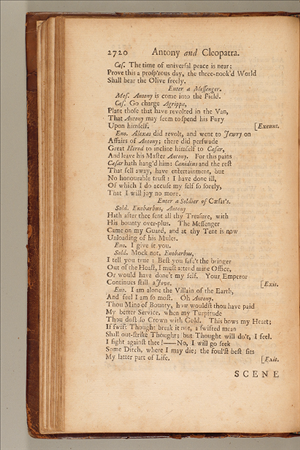 2720 Antony and Cleopatra.
Cæs. The time of universal peace is near:
Prove this a prosp'rous day, the three-nook'd World
Shall bear the Olive freely.
Enter a Messenger.
Mes. Antony is come into the Field.
Cæs. Go charge Agrippa,
Plant those that have revolted in the Van,
That Antony may seem to spend his Fury
Upon himself. [Exeunt.
Eno. Alexas did revolt, and went to Jewry on
Affairs of Antony; there did perswade
Great Herod to incline himself to Cæsar,
And leave his Master Antony. For this pains
Cæsar hath hang'd him: Canidius and the rest
That fell away, have entertainment, but
No honourable trust: I have done ill,
Of which I do accuse my self so sorely,
That I will joy no more.
Enter a Soldier of Cæsar's.
Sold. Enobarbus, Antony
Hath after thee sent all thy Treasure, with
His bounty over-plus. The Messenger
Came on my Guard, and at thy Tent is now
Unloading of his Mules.
Eno. I give it you.
Sold. Mock not, Enobarbus,
I tell you true: Best you saf't the bringer
Out of the Host, I must attend mine Office,
Or would have don't my self. Your Emperor
Continues still a Jove. [Exit.
Eno. I am alone the Villain of the Earth,
And feel I am so most. Oh Antony,
Thou Mine of Bounty, how wouldst thou have paid
My better Service, when my Turpitude
Thou dost so Crown with Gold. This bows my Heart;
If swift Thought break it not, a swifter mean
Shall out-strike Thought; but Thought will do't, I feel.
I fight against thee!——No, I will go seek
Some Ditch, where I may die; the foul'st best fits
My latter part of Life. [Exit.
SCENE